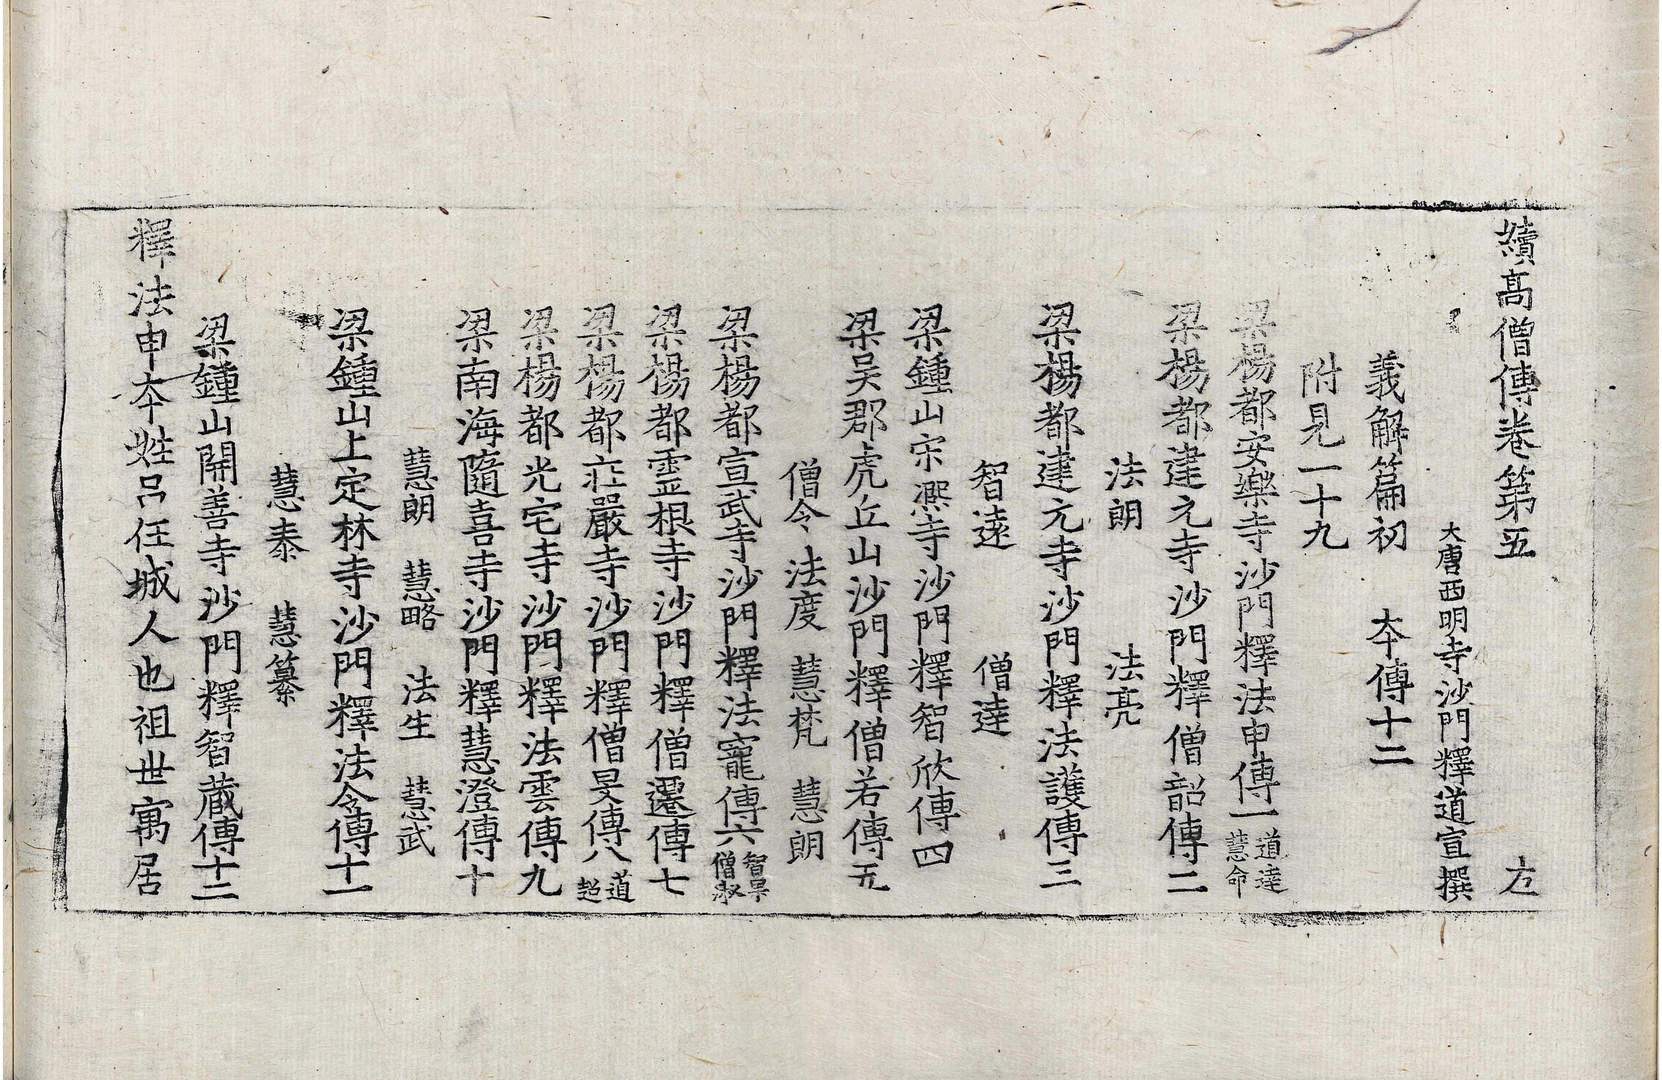 續高僧傳卷第五 左
大唐西明寺沙門釋道宣撰
義解篇初 本傳十二
附見一十九
梁楊都安樂寺沙門釋法申傳一 道達 慧命
梁楊都建元寺沙門釋僧韶傳二
法朗 法亮
梁楊都建元寺沙門釋法護傳三
智遠 僧達
梁鍾山宋熈寺沙門釋智欣傳四
梁吳郡虎丘山沙門釋僧若傳五
僧令 法度 慧梵 慧朗
梁楊都宣武寺沙門釋法寵傳六 智果 僧淑
梁楊都靈根寺沙門釋僧遷傳七
梁楊都莊嚴寺沙門釋僧旻傳八 道超
梁楊都光宅寺沙門釋法雲傳九
梁南海隨喜寺沙門釋慧澄傳十
慧朗 慧略 法生 慧武
梁鍾山上定林寺沙門釋法令傳十一
慧泰 慧纂
梁鍾山開善寺沙門釋智蔵傳十二
釋法申本姓呂任城人也祖世寓居